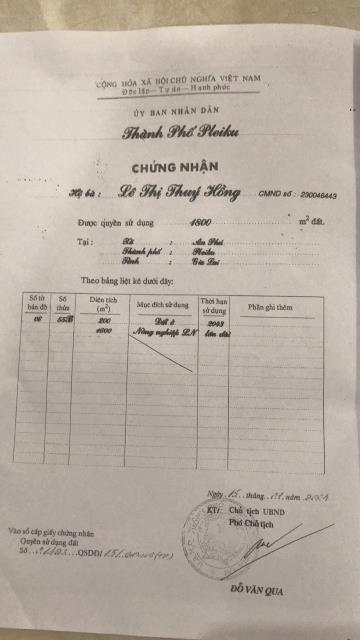 CỘNG HÒA XÃ HỘI CHỦ NGHĨA VIỆT NAM
Độc lập - Tự do - Hạnh phúc
ỦY BAN NHÂN DÂN
Thành Phố Pleiku
CHỨNG NHẬN
Hộ bà : Lê Thị Thuý Hồng CMND số : 230046443
Được quyền sử dụng 4800 m² đất.
Tại : Xã : An Phú
Thành phố : Pleiku
Tỉnh : Gia Lai
Theo bảng liệt kê dưới đây:
Số tờ bản đồ Số thửa Diện tích (m²) Mục đích sử dụng Thời hạn sử dụng Phần ghi thêm
06 200 Đất ở lâu dài
Nông nghiệp LN 2043
Ngày 15 tháng năm
KT/ Chủ tịch UBND
Phó Chủ tịch
Vào sổ cấp giấy chứng nhận
Quyền sử dụng đất
Số QSDĐ/
ĐỖ VĂN QUA